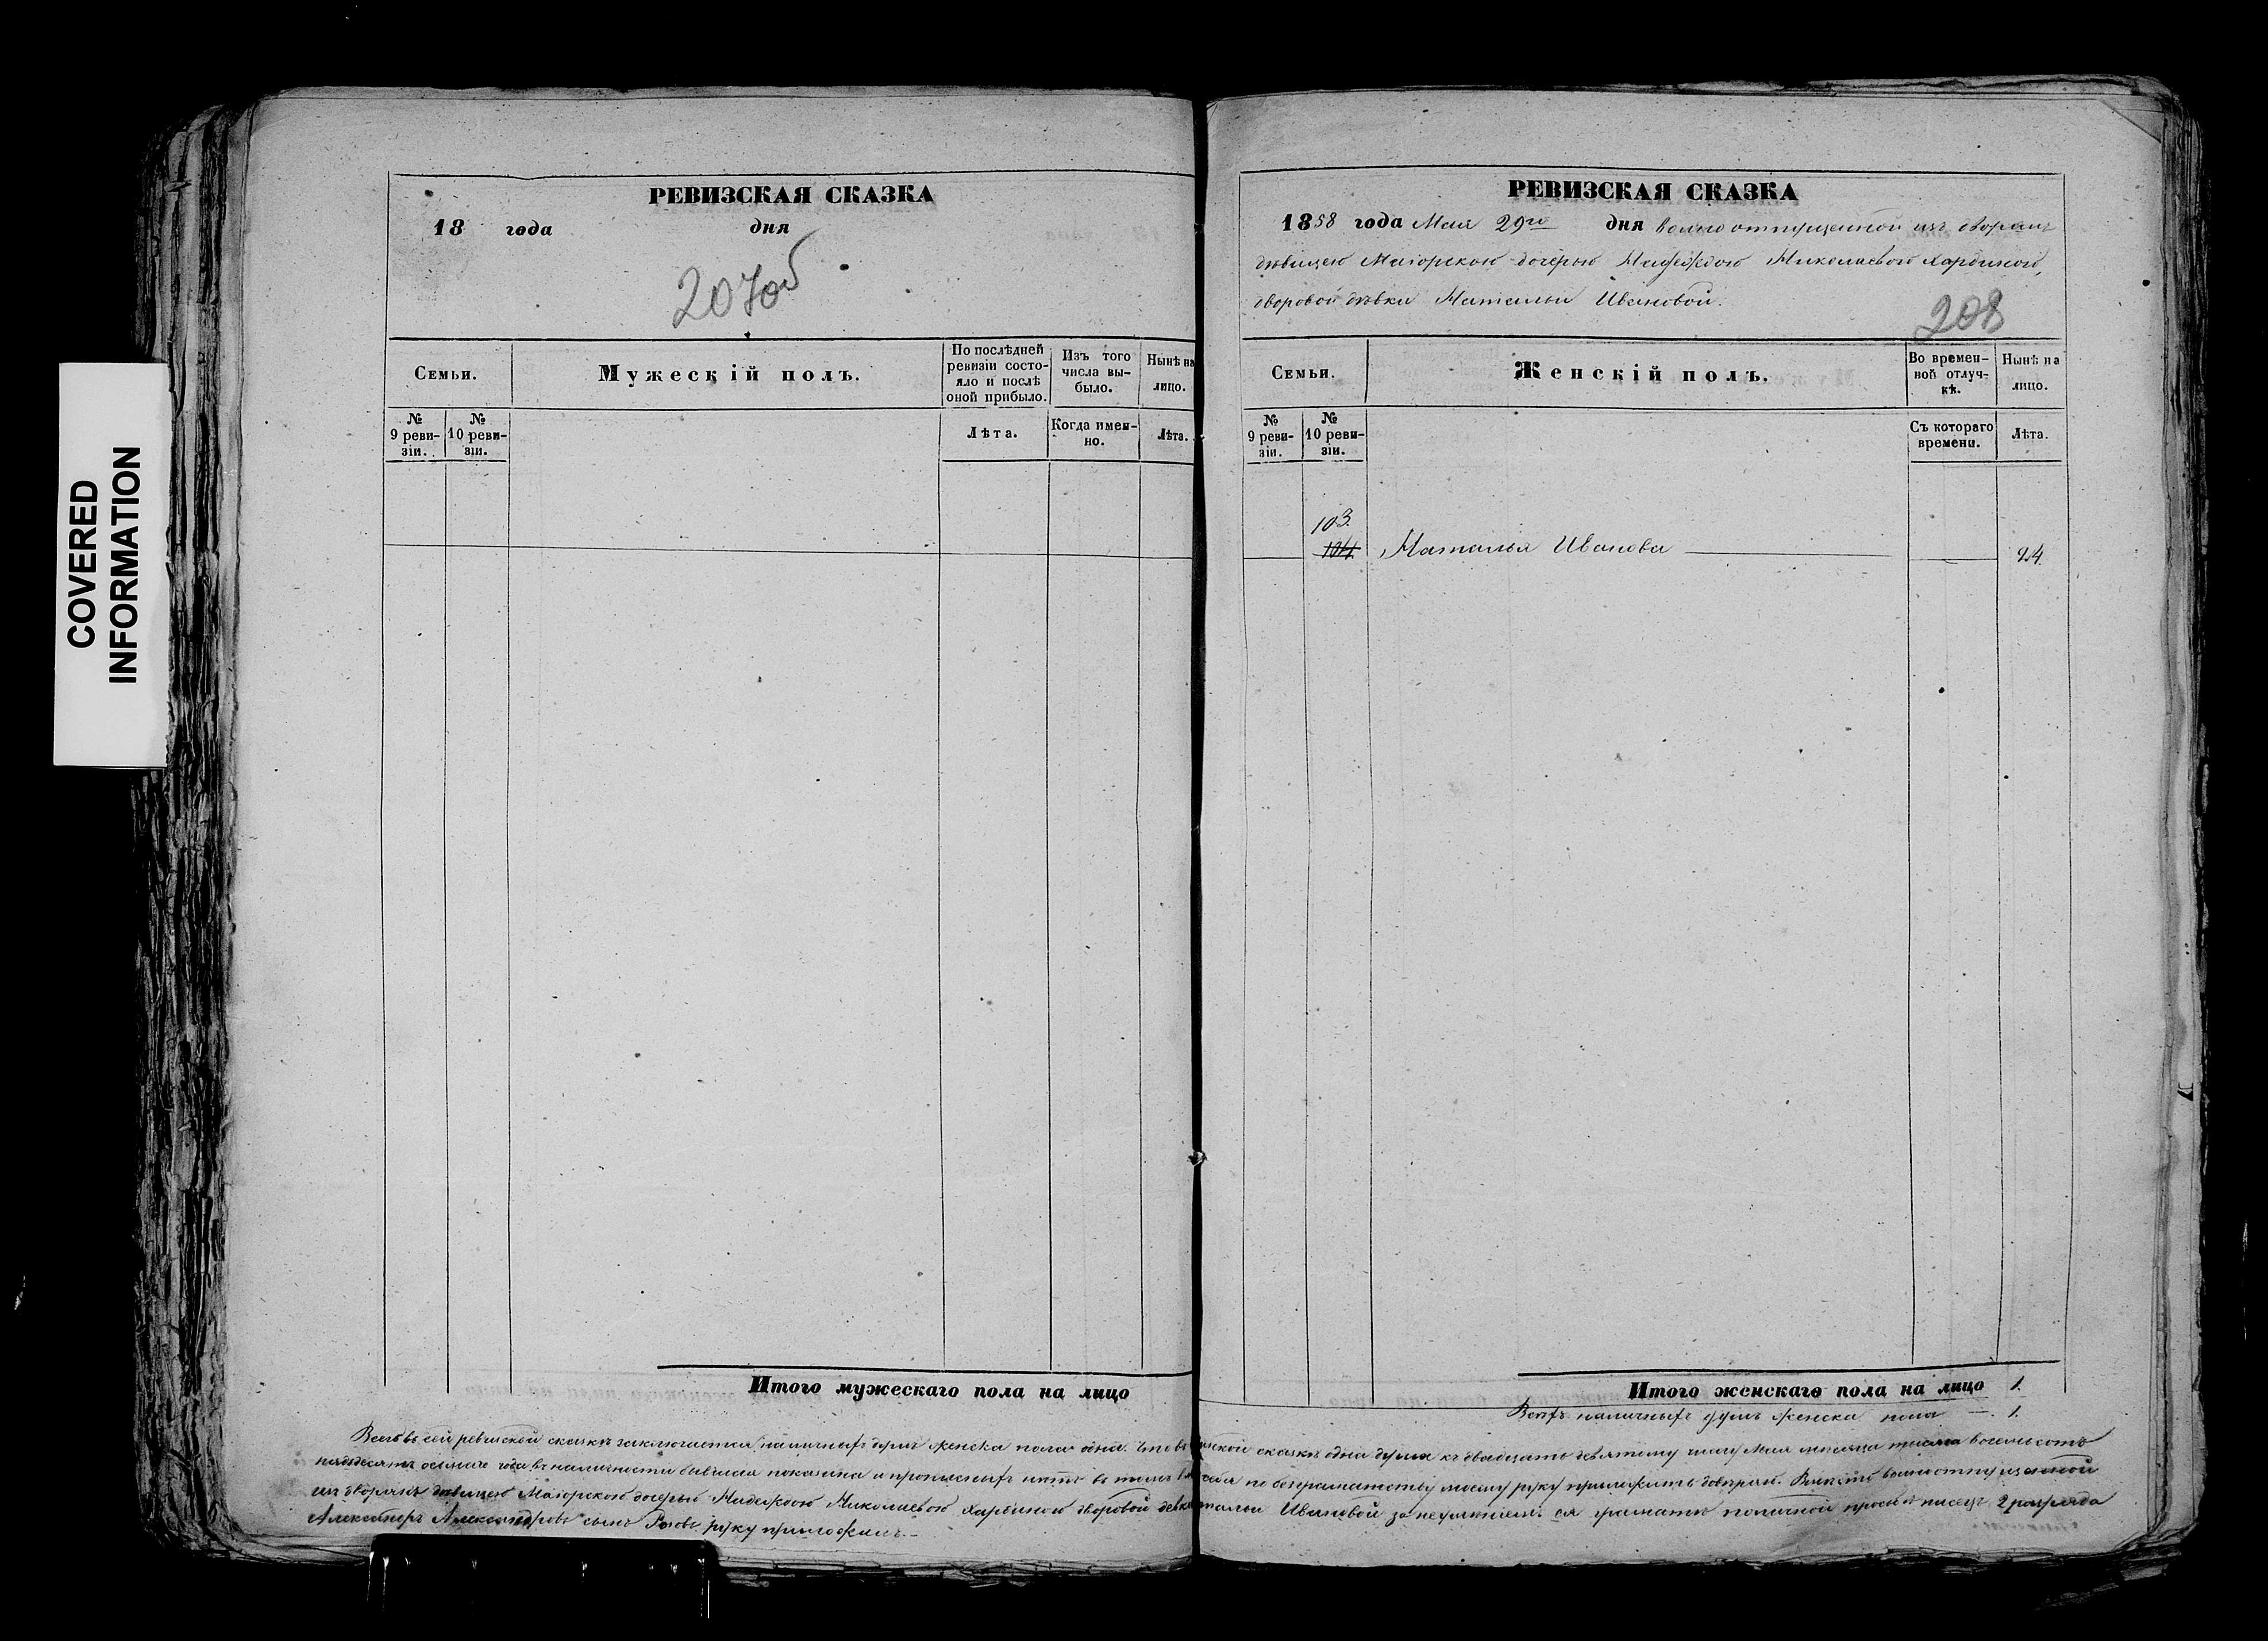 COVERED
INFORMATION
РЕВИЗСКАЯ СКАЗКА
18 года дня
207об
Семьи.
Мужескій полъ.
По послѣдней ревизіи состояло и послѣ оной прибыло.
Изъ того числа выбыло.
Нынѣ на лицо.
№ 9 ревизіи.
№ 10 ревизіи.
Лѣта.
Когда именно.
Лѣта.
Итого мужескаго пола на лицо
РЕВИЗСКАЯ СКАЗКА
1858 года Мая 29го дня вольноотпущенной изъ дворянъ
дѣвицею Маіорскою дочерью Надеждою Николаевною
дворовой дѣвки Натальи Ивановой.
208
Семьи.
Женскій полъ.
Во временной отлучкѣ.
Нынѣ на лицо.
№ 9 ревизіи.
№ 10 ревизіи.
Съ котораго времени.
Лѣта.
103.
104 Наталья Иванова 24.
Итого женскаго пола на лицо 1.
Всѣхъ наличныхъ душъ женска пола 1.
Всего въ сей ревизской сказкѣ заключается наличныхъ душъ женска пола одна. Что въ ревизской сказкѣ одна душа къ двадцать девятому числу Мая мѣсяца тысяча восемьсотъ
пятьдесятъ осьмаго года въ наличности бывшая показана и прописныхъ нѣтъ въ томъ по безграматству моему руку приложить довѣряю. Вмѣсто вольноотпущенной
изъ дворянъ дѣвицею Маіорскою дочерью Надеждою Николаевною дворовой девки Натальи Ивановой за неумѣніемъ ея граматѣ по личной прозьбѣ писецъ 2 разряда
Александръ Александровъ сынъ руку приложилъ.